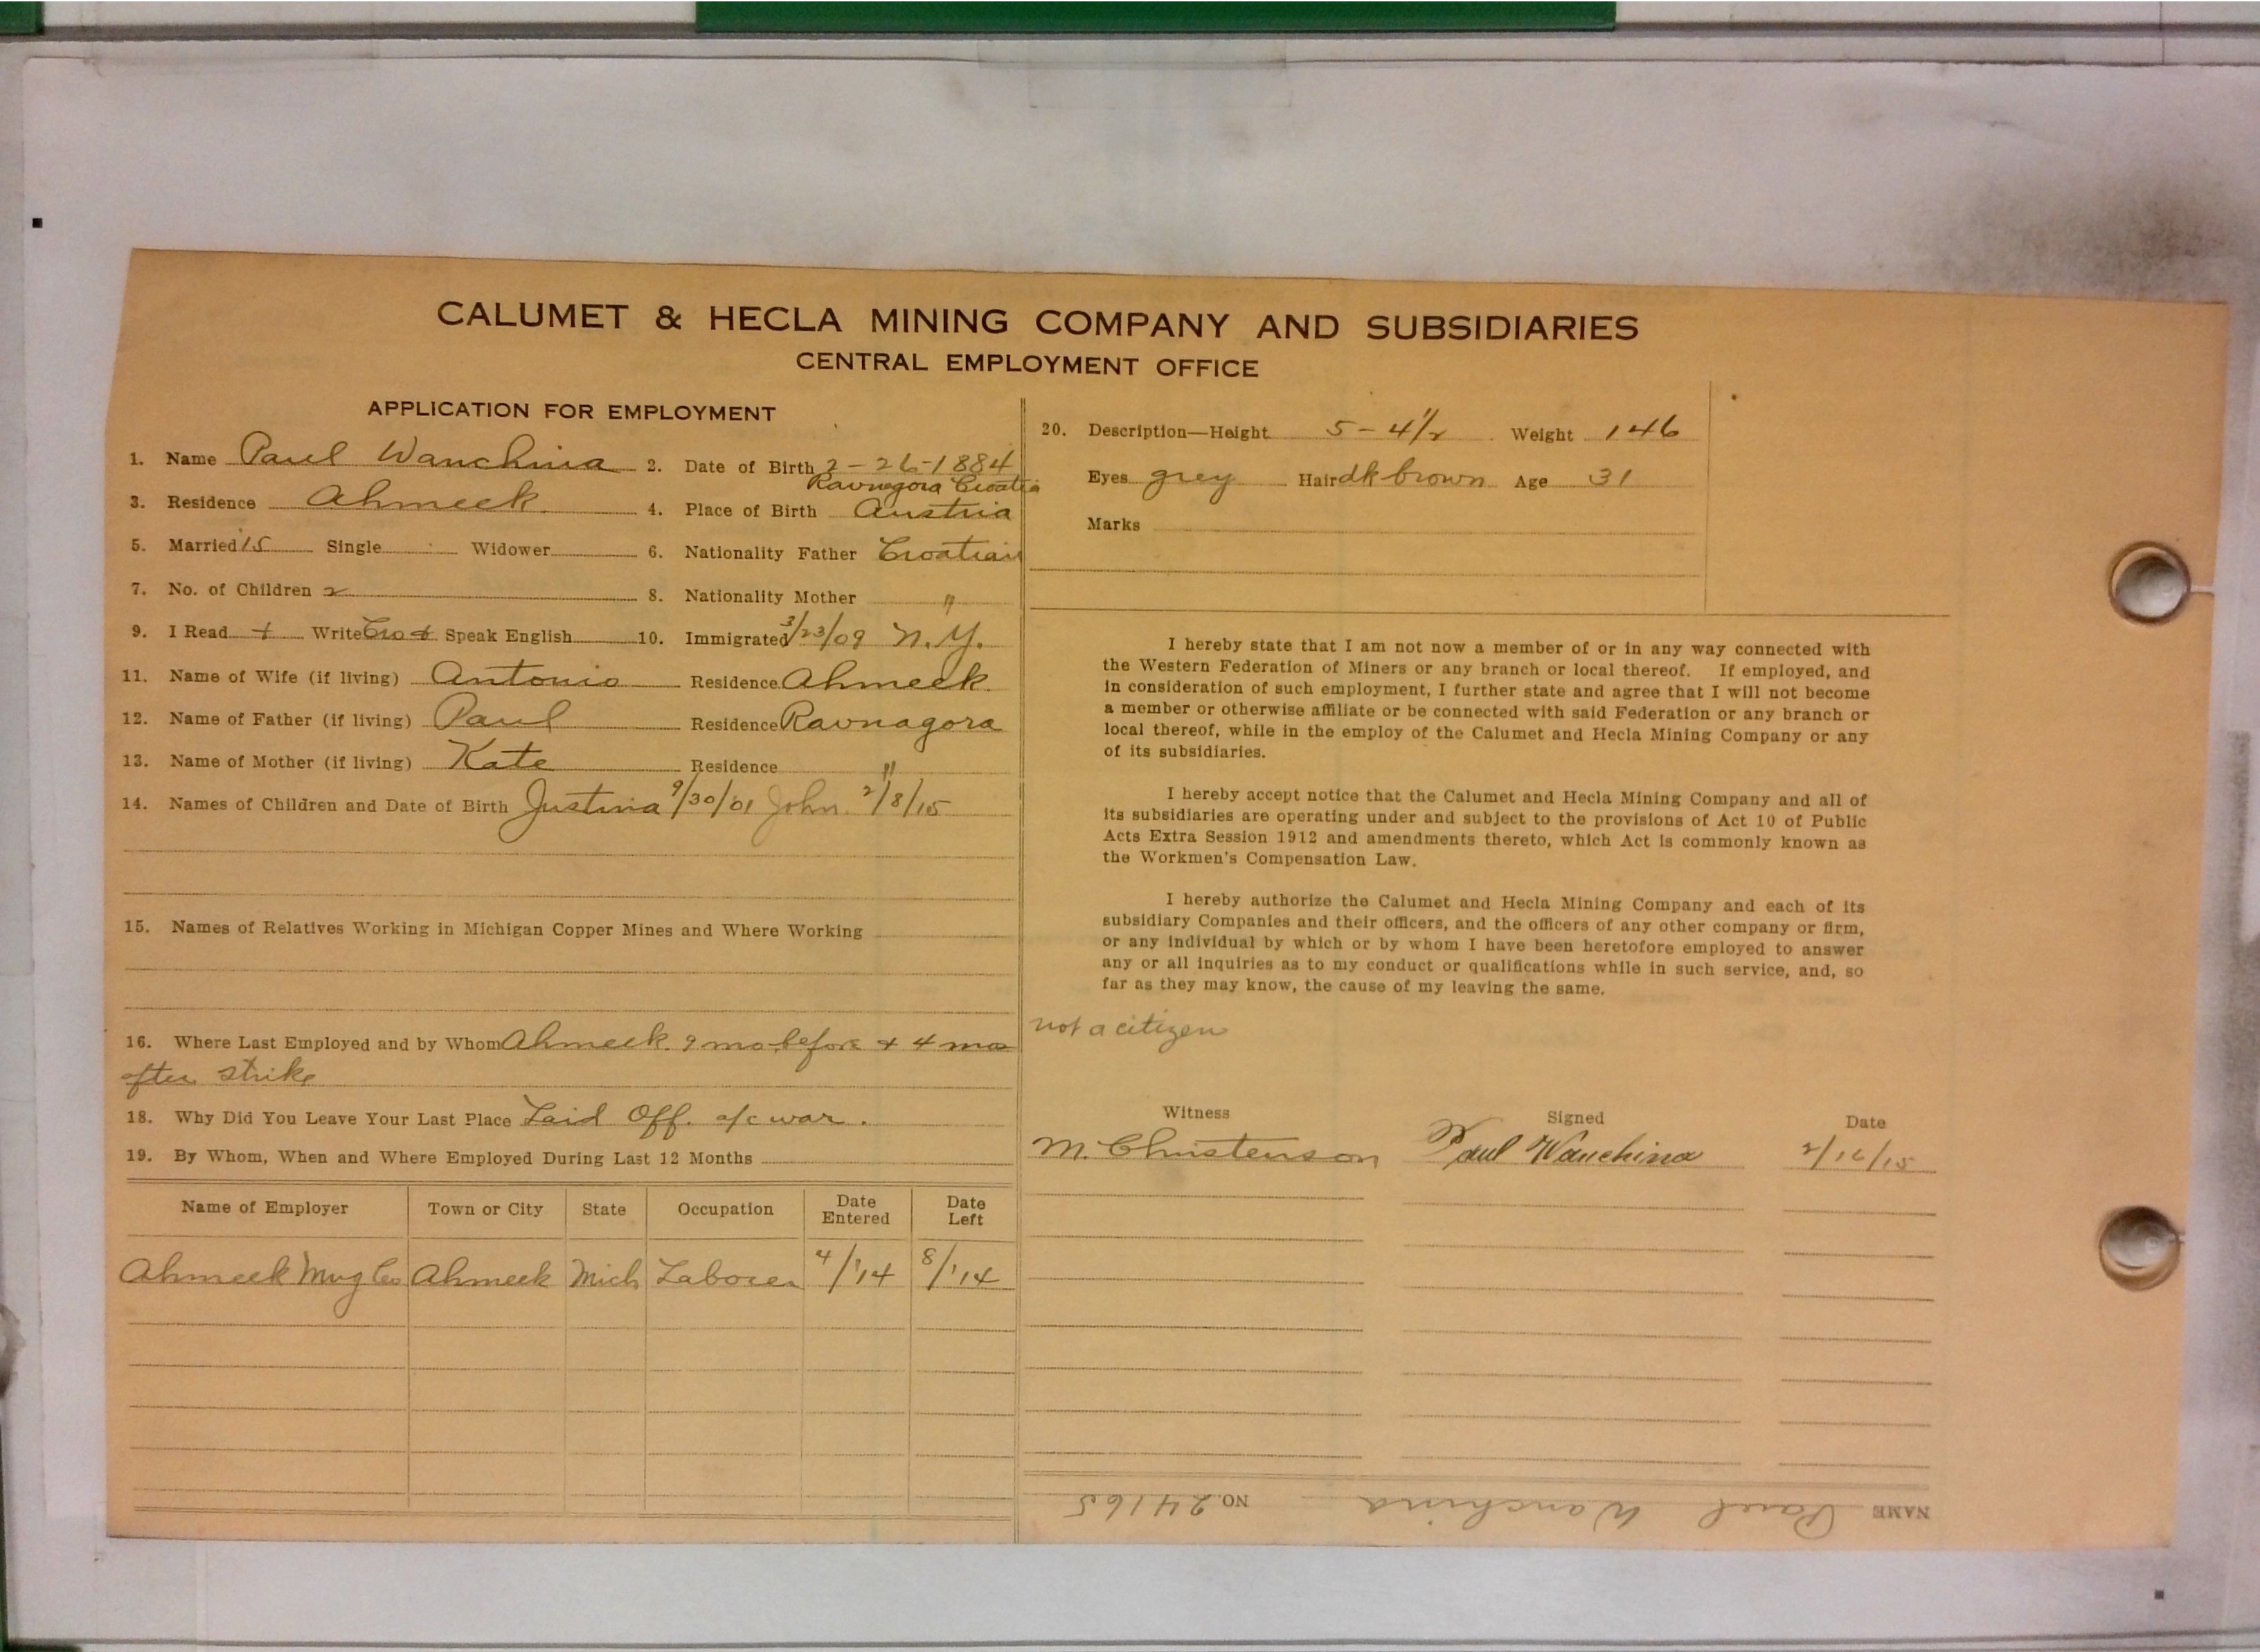 CALUMET & HECLA MINING COMPANY AND SUBSIDIARIES
CENTRAL EMPLOYMENT OFFICE
APPLICATION FOR EMPLOYMENT
1. Name Paul Wanchina 2. Date of Birth 2-26-1884
Ravnegora Croatia
3. Residence Ahmeek. 4. Place of Birth Austria
5. Married 15 Single Widower 6. Nationality Father Croatian
7. No. of Children 2 8. Nationality Mother "
9. I Read + Write Cro + Speak English 10. Immigrated 3/23/09 N.Y.
11. Name of Wife (if living) Antonia Residence Ahmeek.
12. Name of Father (if living) Paul Residence Ravnagora
13. Name of Mother (if living) Kate Residence "
14. Names of Children and Date of Birth Justina 9/30/01 John. 2/8/15
15. Names of Relatives Working in Michigan Copper Mines and Where Working
16. Where Last Employed and by Whom Ahmeek. 9 mo before + 4 mos
after strike
18. Why Did You Leave Your Last Place Laid Off. a/c war.
19. By Whom, When and Where Employed During Last 12 Months
Name of Employer Town or City State Occupation Date Entered Date Left
Ahmeek Mng Co Ahmeek Mich Laborer 4/'14 8/'14
20. Description—Height 5-4 1/2 Weight 146
Eyes grey Hair dk brown Age 31
Marks
I hereby state that I am not now a member of or in any way connected with
the Western Federation of Miners or any branch or local thereof. If employed, and
in consideration of such employment, I further state and agree that I will not become
a member or otherwise affiliate or be connected with said Federation or any branch or
local thereof, while in the employ of the Calumet and Hecla Mining Company or any
of its subsidiaries.
I hereby accept notice that the Calumet and Hecla Mining Company and all of
its subsidiaries are operating under and subject to the provisions of Act 10 of Public
Acts Extra Session 1912 and amendments thereto, which Act is commonly known as
the Workmen's Compensation Law.
I hereby authorize the Calumet and Hecla Mining Company and each of its
subsidiary Companies and their officers, and the officers of any other company or firm,
or any individual by which or by whom I have been heretofore employed to answer
any or all inquiries as to my conduct or qualifications while in such service, and, so
far as they may know, the cause of my leaving the same.
not a citizen
Witness Signed Date
M. Christenson Paul Wanchina 2/16/15
NAME Paul Wanchina NO. 24165